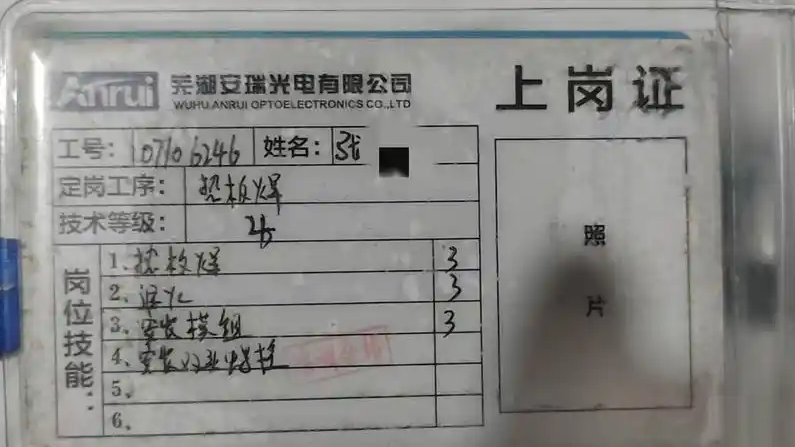 Anrui 芜湖安瑞光电有限公司
WUHU ANRUI OPTOELECTRONICS CO.,LTD
上岗证
工号: 107106246 姓名: 张
定岗工序: 热板焊
技术等级:
岗位技能:
1、热板焊 3
2、退火 3
3、安装模组 3
4、安装
5、
6、
照
片